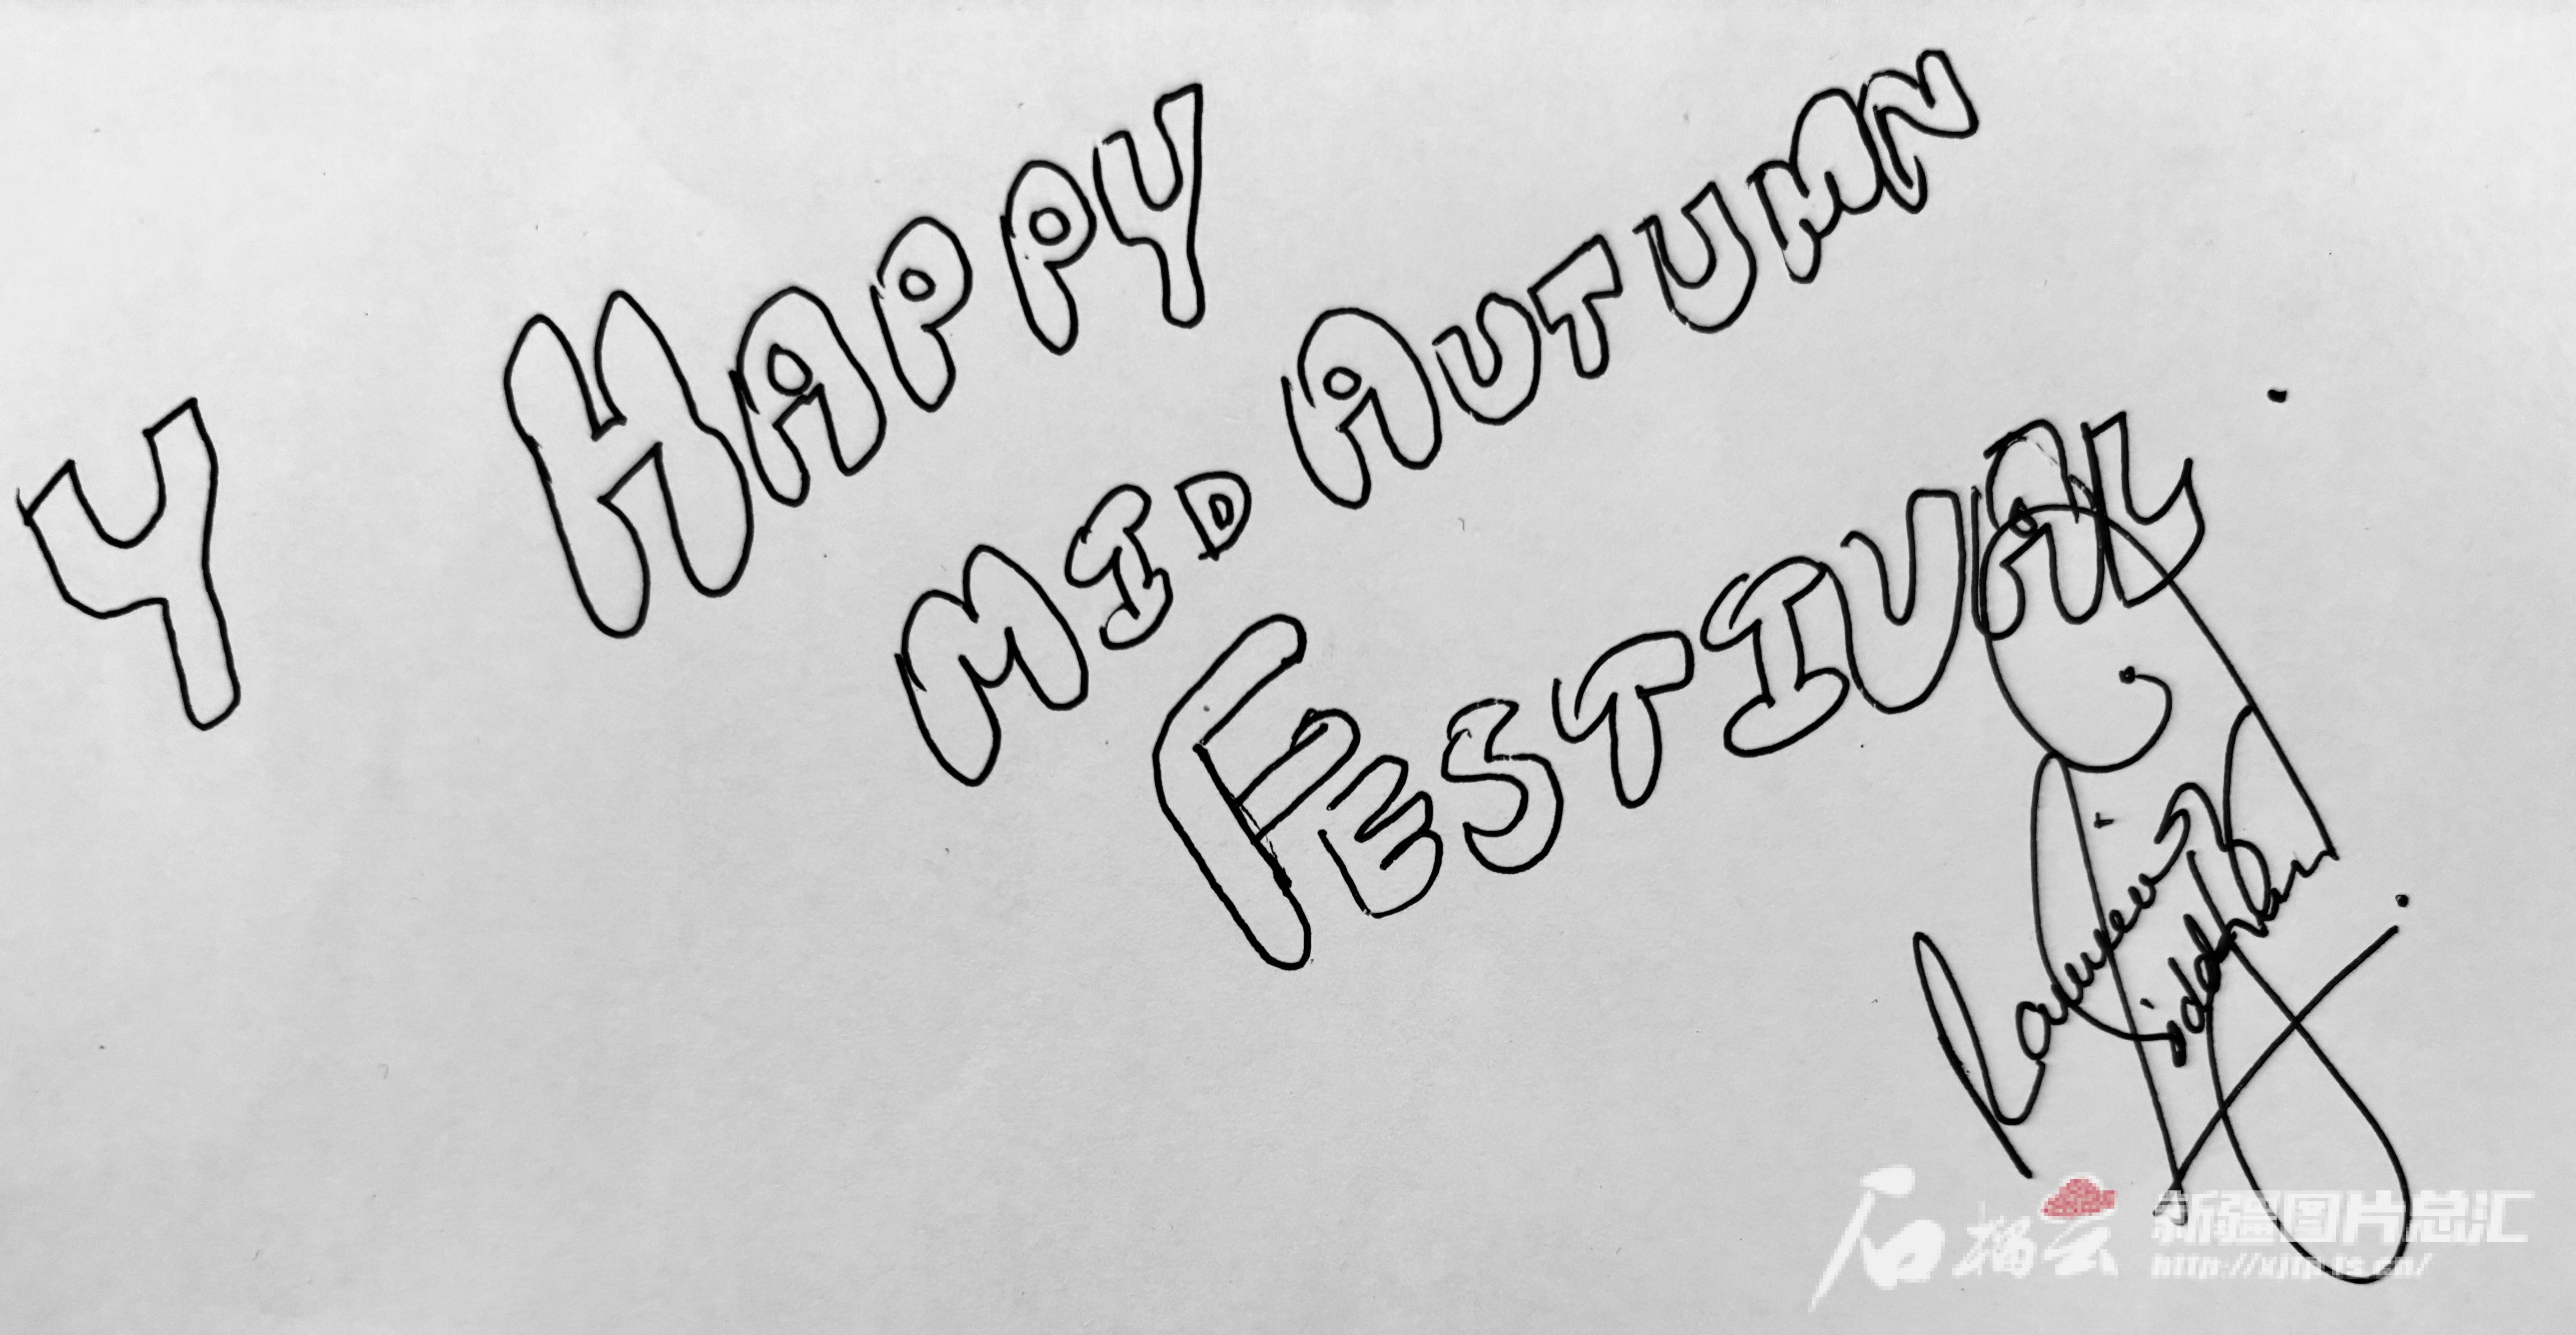 Y HAPPY
MID AUTUMN
FESTIVAL.
石榴云 新疆图片总汇
http://xjtp.ts.cn/